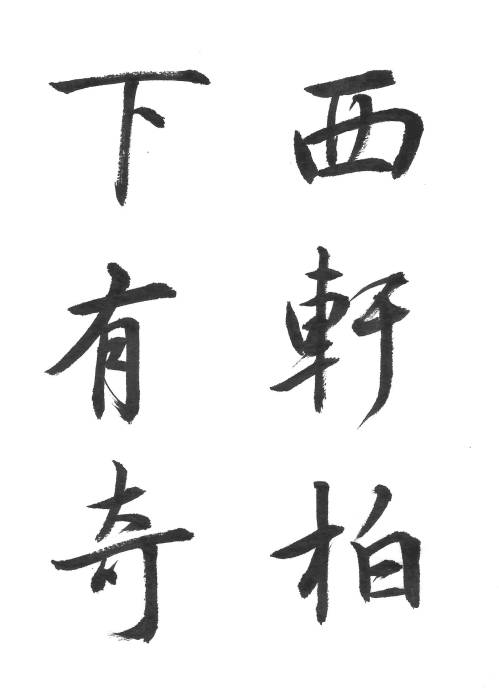 西軒柏
下有奇